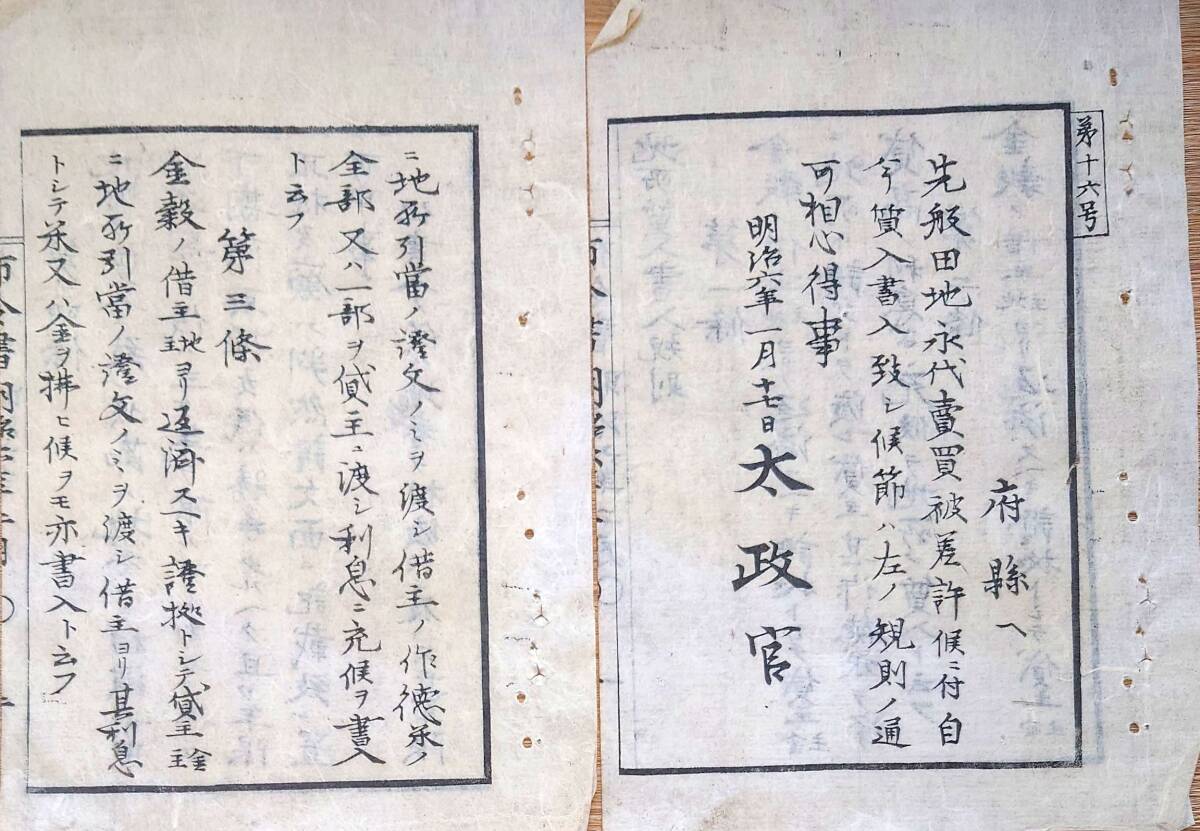 第十六号
府縣ヘ
先般田地永代賣買被差許候ニ付自
今質入書入致シ候節ハ左ノ規則ノ通
可相心得事
明治六年一月十七日
太政官
ニ地所引當ノ證文ノミヲ渡シ借主ノ作徳米ノ
全部又ハ一部ヲ貸主ニ渡シ利息ニ充候ヲ書入
ト云フ
第三條
金穀ノ借主地主ヨリ返済スヘキ證拠トシテ貸主金主
ニ地所引當ノ證文ノミヲ渡シ借主ヨリ其利息
トシテ米又ハ金ヲ拂ヒ候ヲモ亦書入ト云フ